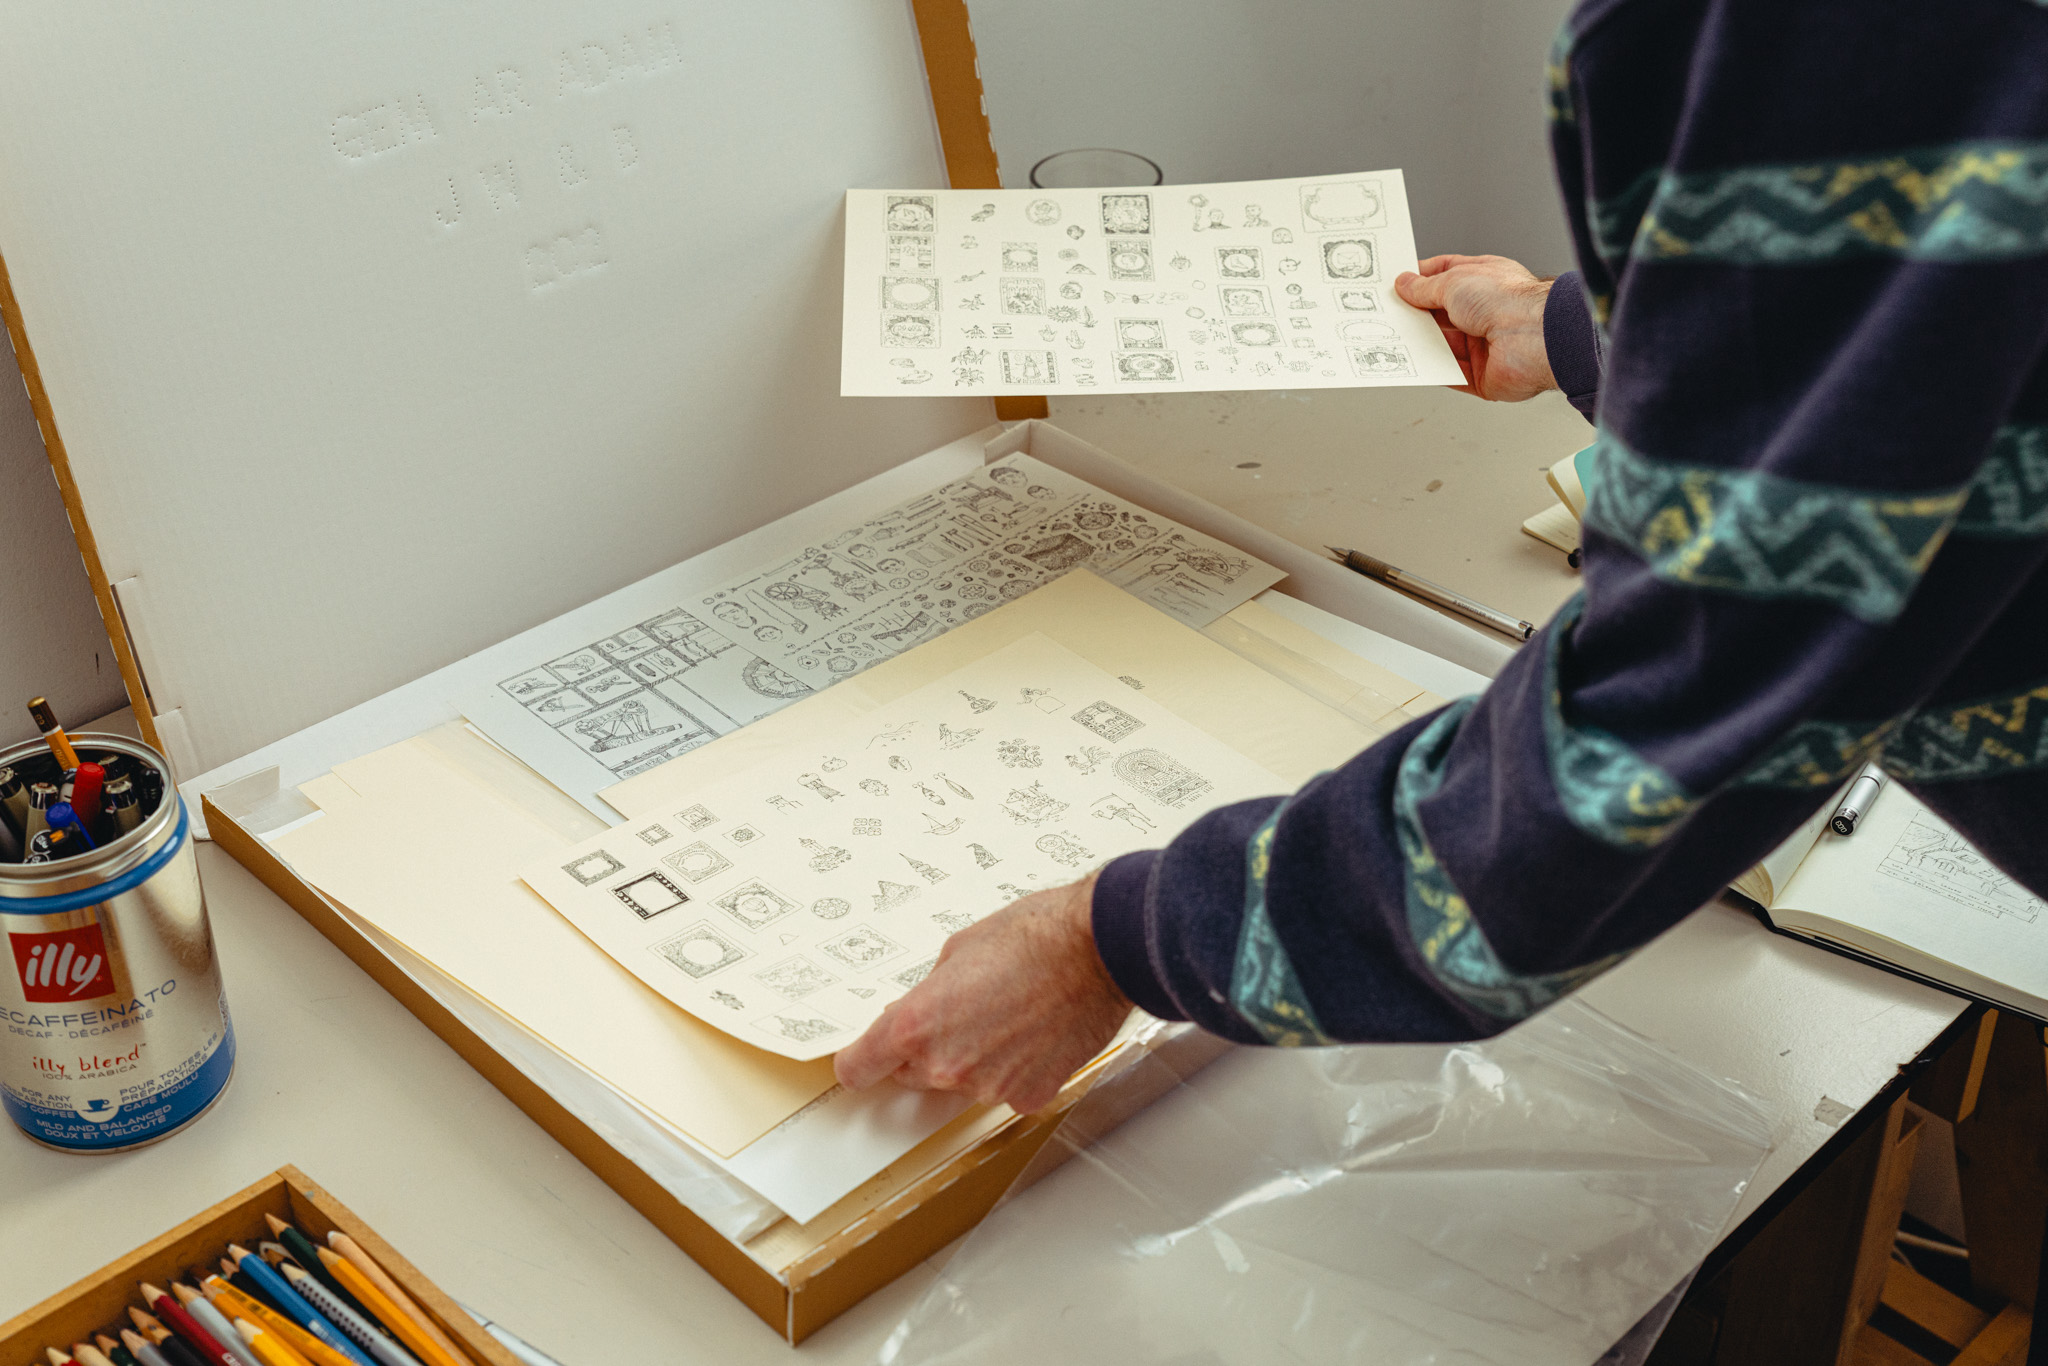 GEM AR ADAM
J W & D
illy
ECAFFEINATO
DECAF - DÉCAFÉINÉ
illy blend™
100% ARABICA
FOR ANY
COFFEE
POUR TOUTES LES
PRÉPARATIONS
CAFÉ MOULU
MILD AND BALANCED
DOUX ET VELOUTÉ